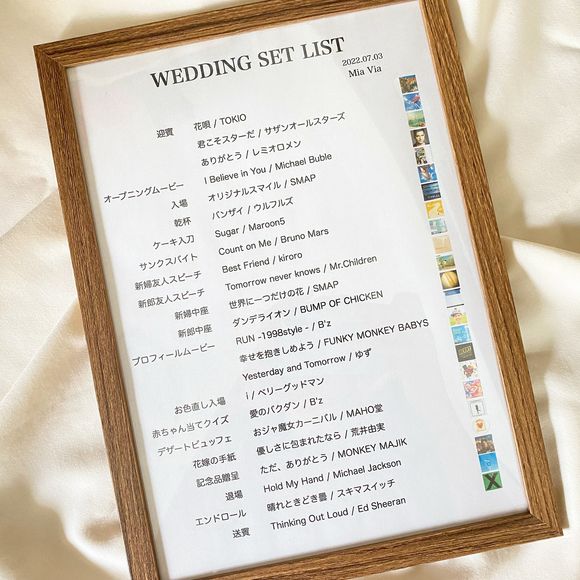 WEDDING SET LIST
2022.07.03
Mia Via
迎賓 花唄 / TOKIO
君こそスターだ / サザンオールスターズ
ありがとう / レミオロメン
オープニングムービー I Believe in You / Michael Buble
入場 オリジナルスマイル / SMAP
乾杯 バンザイ / ウルフルズ
ケーキ入刀 Sugar / Maroon5
サンクスバイト Count on Me / Bruno Mars
新婦友人スピーチ Best Friend / kiroro
新郎友人スピーチ Tomorrow never knows / Mr.Children
新婦中座 世界に一つだけの花 / SMAP
新郎中座 ダンデライオン / BUMP OF CHICKEN
プロフィールムービー RUN -1998style - / B'z
幸せを抱きしめよう / FUNKY MONKEY BABYS
Yesterday and Tomorrow / ゆず
お色直し入場 i / ベリーグッドマン
赤ちゃん当てクイズ 愛のバクダン / B'z
デザートビュッフェ おジャ魔女カーニバル / MAHO堂
花嫁の手紙 優しさに包まれたなら / 荒井由実
記念品贈呈 ただ、ありがとう / MONKEY MAJIK
退場 Hold My Hand / Michael Jackson
エンドロール 晴れときどき曇 / スキマスイッチ
送賓 Thinking Out Loud / Ed Sheeran